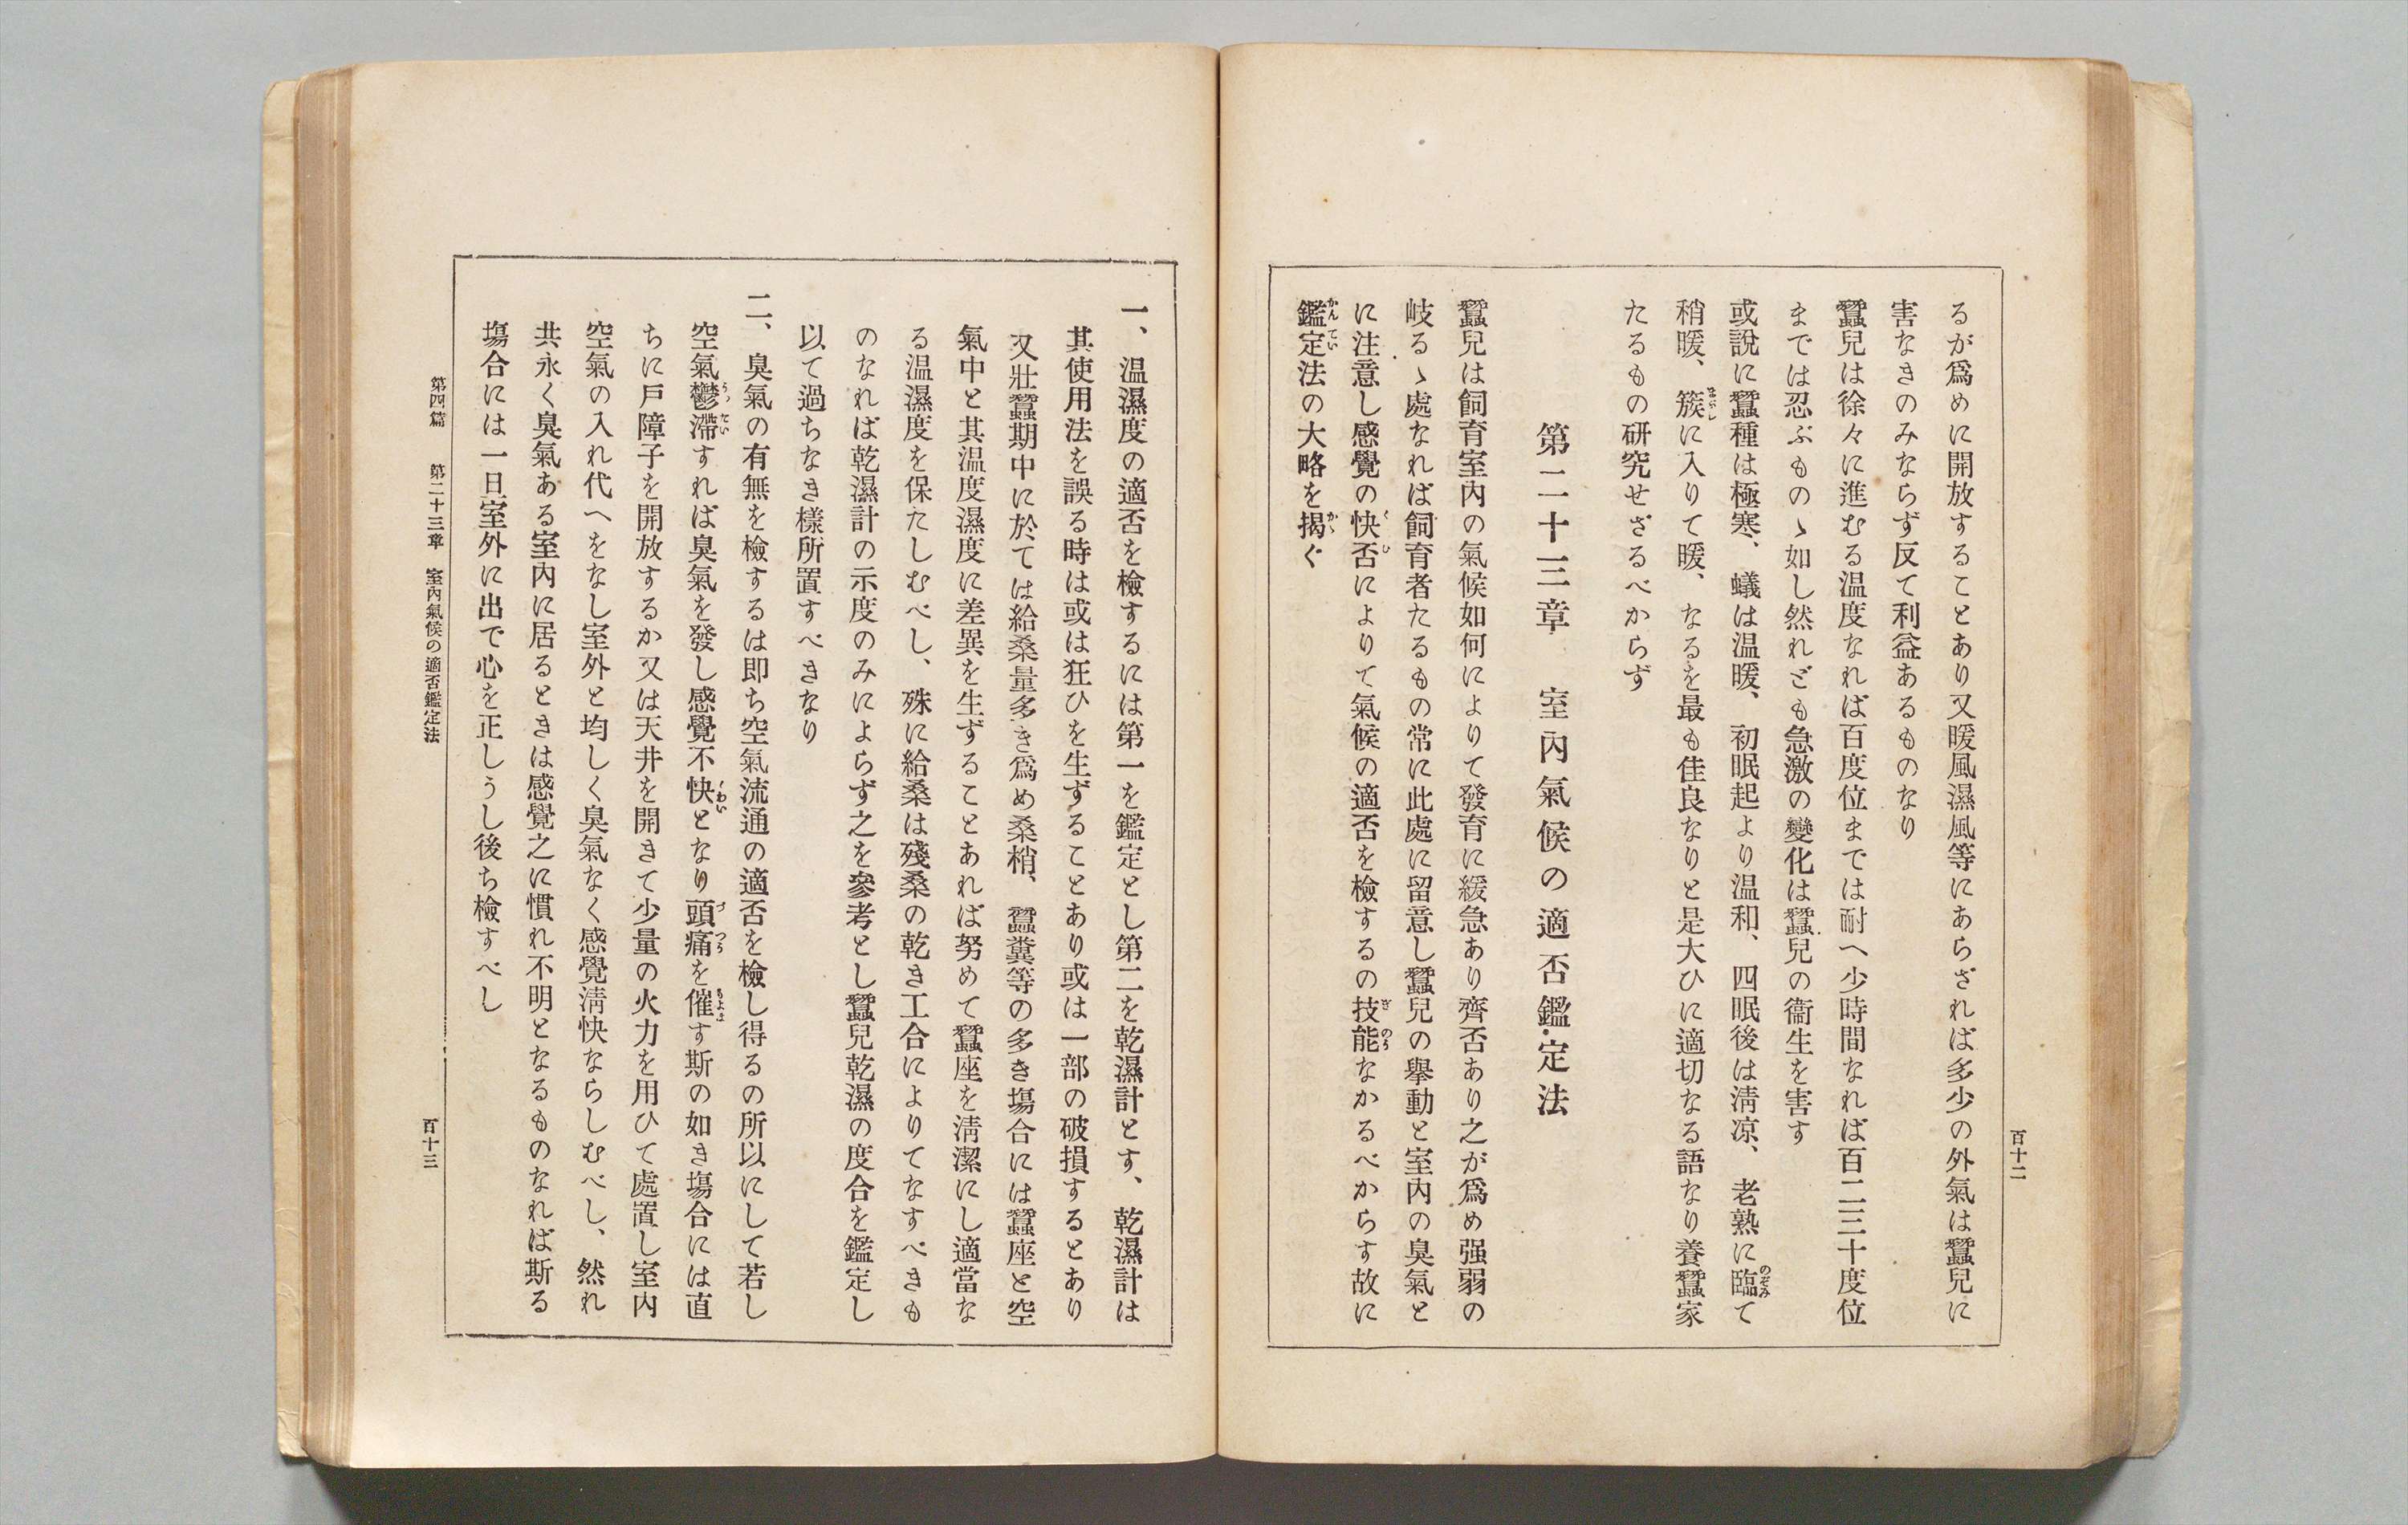 百十二
るが爲めに開放することあり又暖風濕風等にあらざれば多少の外氣は蠶兒に
害なきのみならず反て利益あるものなり
蠶兒は徐々に進むる温度なれば百度位までは耐へ少時間なれば百二三十度位
までは忍ぶものゝ如し然れども急激の變化は蠶兒の衞生を害す
或說に蠶種は極寒、蟻は温暖、初眠起より温和、四眠後は淸凉、老熟に臨て
稍暖、簇に入りて暖、なるを最も佳良なりと是大ひに適切なる語なり養蠶家
たるもの研究せざるべからず
第二十三章　室內氣候の適否鑑定法
蠶兒は飼育室內の氣候如何によりて發育に緩急あり齊否あり之が爲め强弱の
岐るゝ處なれば飼育者たるもの常に此處に留意し蠶兒の擧動と室內の臭氣と
に注意し感覺の快否によりて氣候の適否を檢するの技能なかるべからす故に
鑑定法の大略を揭ぐ
一、温濕度の適否を檢するには第一を鑑定とし第二を乾濕計とす、乾濕計は
其使用法を誤る時は或は狂ひを生ずることあり或は一部の破損するとあり
又壯蠶期中に於ては給桑量多き爲め桑梢、蠶糞等の多き塲合には蠶座と空
氣中と其温度濕度に差異を生ずることあれば努めて蠶座を淸潔にし適當な
る温濕度を保たしむべし、殊に給桑は殘桑の乾き工合によりてなすべきも
のなれば乾濕計の示度のみによらず之を參考とし蠶兒乾濕の度合を鑑定し
以て過ちなき樣所置すべきなり
二、臭氣の有無を檢するは卽ち空氣流通の適否を檢し得るの所以にして若し
空氣鬱滯すれば臭氣を發し感覺不快となり頭痛を催す斯の如き塲合には直
ちに戸障子を開放するか又は天井を開きて少量の火力を用ひて處置し室內
空氣の入れ代へをなし室外と均しく臭氣なく感覺淸快ならしむべし、然れ
共永く臭氣ある室內に居るときは感覺之に慣れ不明となるものなれば斯る
塲合には一旦室外に出で心を正しうし後ち檢すべし
第四篇　第二十三章　室內氣候の適否鑑定法
百十三